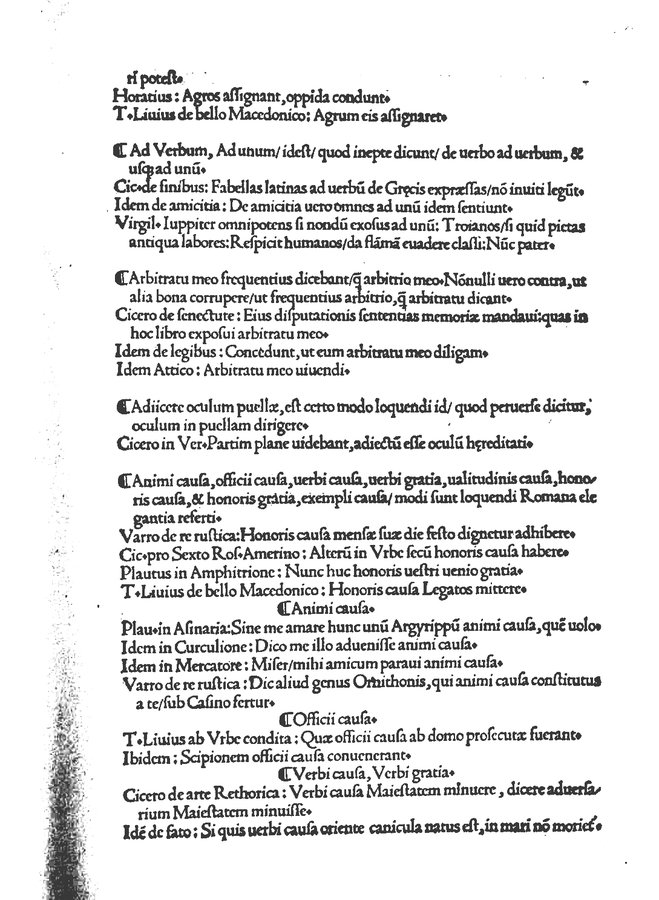 ri poteſt.
Horatius: Agros aſſignant, oppida condunt.
T. Liuius de bello Macedonico: Agrum eis aſſignaret.
¶ Ad Verbum, Ad unum/ ideſt/ quod inepte dicunt/ de uerbo ad uerbum, &
uſq; ad unū.
Cic. de finibus: Fabellas latinas ad uerbū de Gręcis expræſſas/ nō inuiti legūt.
Idem de amicitia: De amicitia uero omnes ad unū idem ſentiunt.
Virgil. Iuppiter omnipotens ſi nondū exoſus ad unū: Troianos/ ſi quid pietas
antiqua labores: Reſpicit humanos/ da flāmā euadere claſſi: Nūc pater.
¶ Arbitratu meo frequentius dicebant/ q̄ arbitrio meo. Nōnulli uero contra, ut
alia bona corrupere/ ut frequentius arbitrio, q̄ arbitratu dicant.
Cicero de ſenectute: Eius diſputationis ſententias memoriæ mandaui: quas in
hoc libro expoſui arbitratu meo.
Idem de legibus: Concedunt, ut eum arbitratu meo diligam.
Idem Attico: Arbitratu meo uiuendi.
¶ Adiicere oculum puellæ, eſt certo modo loquendi id/ quod peruerſe dicitur,
oculum in puellam dirigere.
Cicero in Ver. Partim plane uidebant, adiectū eſſe oculū hęreditati.
¶ Animi cauſa, officii cauſa, uerbi cauſa, uerbi gratia, ualitudinis cauſa, hono-
ris cauſa, & honoris gratia, exempli cauſa/ modi ſunt loquendi Romana ele
gantia referti.
Varro de re ruſtica: Honoris cauſa menſæ ſuæ die feſto dignetur adhibere.
Cic. pro Sexto Roſ. Amerino: Alterū in Vrbe ſecū honoris cauſa habere.
Plautus in Amphitrione: Nunc huc honoris ueſtri uenio gratia.
T. Liuius de bello Macedonico: Honoris cauſa Legatos mittere.
¶ Animi cauſa.
Plau. in Aſinaria: Sine me amare hunc unū Argyrippū animi cauſa, quē uolo.
Idem in Curculione: Dico me illo adueniſſe animi cauſa.
Idem in Mercatore: Miſer/ mihi amicum paraui animi cauſa.
Varro de re ruſtica: Dic aliud genus Ornithonis, qui animi cauſa conſtitutus
a te/ ſub Caſino fertur.
¶ Officii cauſa.
T. Liuius ab Vrbe condita: Quæ officii cauſa ab domo proſecutæ fuerant.
Ibidem: Scipionem officii cauſa conuenerant.
¶ Verbi cauſa, Verbi gratia.
Cicero de arte Rethorica: Verbi cauſa Maieſtatem minuere, dicere aduerſa-
rium Maieſtatem minuiſſe.
Idē de fato: Si quis uerbi cauſa oriente canicula natus eſt, in mari nō morieť.